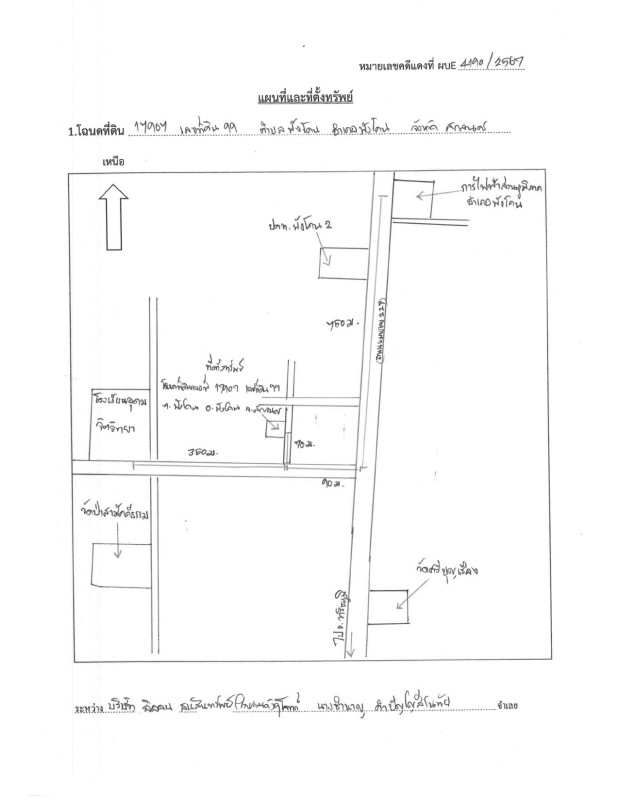 หมายเลขคดีแดงที่ ผบE 4190/2567
แผนที่และที่ตั้งทรัพย์
1.โฉนดที่ดิน 17907 เลขที่ดิน 99 ตำบล พังโคน อำเภอ พังโคน จังหวัด สกลนคร
เหนือ
การไฟฟ้าส่วนภูมิภาค
อำเภอพังโคน
ปตท. พังโคน 2
ถนนหมายเลข 227
450 ม.
ที่ตั้งทรัพย์
โฉนดที่ดินเลขที่ 17907 เลขที่ดิน 99
ต. พังโคน อ. พังโคน จ. สกลนคร
โรงเรียนอุดม
จิตวิทยา
350 ม.
70 ม.
90 ม.
วัดป่าสามัคคีธรรม
วัดศรีบุญเรือง
ไป อ. วาริชภูมิ
ระหว่าง บริษัท สินทรัพย์ โจทก์ นาง จำเลย